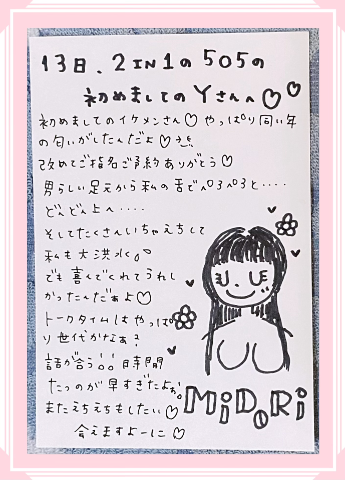 13日、2IN1の505の
初めましてのYさんへ♡♡
初めましてのイケメンさん♡やっぱり同い年
の匂いがしたんだよ♡
改めてご指名ご予約ありがとう♡
男らしい足元から私の舌でペロペロと‥‥
どんどん上へ‥‥
そしてたくさんいちゃえちして
私も大洪水。
でも喜んでくれてうれし
かったんだぁよ♡
トークタイムはやっぱ
り世代かなぁ?
話が合う!!時間
たつのが早すぎたよぉ。
またえちえちもしたい♡
会えますよーに♡
MiDORi